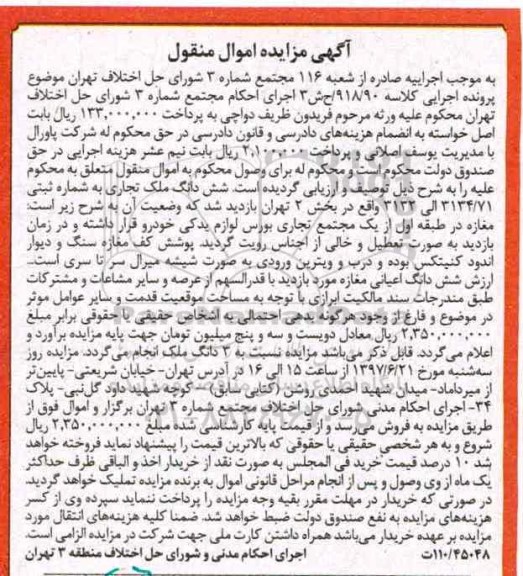 آگهی مزایده اموال منقول
به موجب اجراییه صادره از شعبه ۱۱۶ مجتمع شماره ۳ شورای حل اختلاف تهران موضوع
پرونده اجرایی کلاسه ۹۱۸/۹۰/ح‌ش۳ اجرای احکام مجتمع شماره ۳ شورای حل اختلاف
تهران محکوم علیه ورثه مرحوم فریدون ظریف دواچی به پرداخت ۱۳۳,۰۰۰,۰۰۰ ریال بابت
اصل خواسته به انضمام هزینه‌های دادرسی و قانون دادرسی در حق محکوم له شرکت پاورال
با مدیریت یوسف اصلانی و پرداخت ۲,۱۰۰,۰۰۰ ریال بابت نیم عشر هزینه اجرایی در حق
صندوق دولت محکوم است و محکوم له برای وصول محکوم به اموال منقول متعلق به محکوم
علیه را به شرح ذیل توصیف و ارزیابی گردیده است. شش دانگ ملک تجاری به شماره ثبتی
۳۱۳۴/۷۱ الی ۳۱۳۳ واقع در بخش ۲ تهران بازدید شد که وضعیت آن به شرح زیر است:
مغازه در طبقه اول از یک مجتمع تجاری بورس لوازم یدکی خودرو قرار داشته و در زمان
بازدید به صورت تعطیل و خالی از اجناس رویت گردید. پوشش کف مغازه سنگ و دیوار
اندود کنیتکس بوده و درب و ویترین ورودی به صورت شیشه میرال سر تا سری است.
ارزش شش دانگ اعیانی مغازه مورد بازدید با قدرالسهم از عرصه و سایر مشاعات و مشترکات
طبق مندرجات سند مالکیت ابرازی با توجه به مساحت موقعیت قدمت و سایر عوامل موثر
در موضوع و فارغ از وجود هرگونه بدهی احتمالی به اشخاص حقیقی یا حقوقی برابر مبلغ
۲,۳۵۰,۰۰۰,۰۰۰ ریال معادل دویست و سه و پنج میلیون تومان جهت پایه مزایده برآورد و
اعلام می‌گردد. قابل ذکر می‌باشد مزایده نسبت به ۲ دانگ ملک انجام می‌گردد. مزایده روز
سه‌شنبه مورخ ۱۳۹۷/۶/۲۱ از ساعت ۱۵ الی ۱۶ در آدرس تهران- خیابان شریعتی- پایین‌تر
از میرداماد- میدان شهید احمدی روشن (کتابی سابق)- کوچه شهید داود گل‌نبی- پلاک
۳۴- اجرای احکام مدنی شورای حل اختلاف مجتمع شماره ۳ تهران برگزار و اموال فوق از
طریق مزایده به فروش می‌رسد و از قیمت پایه کارشناسی شده مبلغ ۲,۳۵۰,۰۰۰,۰۰۰ ریال
شروع و به هر شخصی حقیقی یا حقوقی که بالاترین قیمت را پیشنهاد نماید فروخته خواهد
شد ۱۰ درصد قیمت خرید فی المجلس به صورت نقد از خریدار اخذ و الباقی ظرف حداکثر
یک ماه از وی وصول و پس از انجام مراحل قانونی اموال به برنده مزایده تملیک خواهد گردید.
در صورتی که خریدار در مهلت مقرر بقیه وجه مزایده را پرداخت ننماید سپرده وی از کسر
هزینه‌های مزایده به نفع صندوق دولت ضبط خواهد شد. ضمنا کلیه هزینه‌های انتقال مورد
مزایده بر عهده خریدار می‌باشد همراه داشتن کارت ملی جهت شرکت در مزایده الزامی است.
۱۱۰/۴۵۰۴۸ت اجرای احکام مدنی و شورای حل اختلاف منطقه ۳ تهران